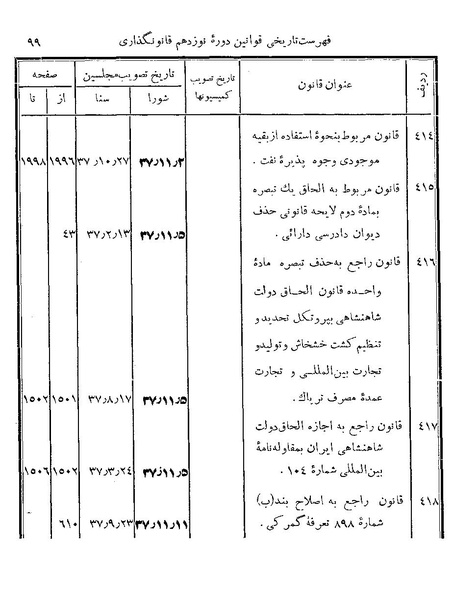 فهرست تاریخی قوانین دورهٔ نوزدهم قانونگذاری ۹۹
ردیف عنوان قانون تاریخ تصویب کمیسیونها تاریخ تصویب مجلسین صفحه
شورا سنا از تا
٤١٤ قانون مربوط بنحوهٔ استفاده از بقیه
موجودی وجوه پذیرهٔ نفت . ۳۷٫۱۱٫۲ ۳۷٫۱۰٫۲۷ ۱۹۹۶ ۱۹۹۸
٤١٥ قانون مربوط به الحاق یك تبصره
بمادهٔ دوم لایحه قانونی حذف
دیوان دادرسی دارائی . ۳۷٫۱۱٫۵ ۳۷٫۲٫۱۳ ٤۳
٤١٦ قانون راجع به حذف تبصره مادهٔ
واحده قانون الحاق دولت
شاهنشاهی بپروتکل تحدید و
تنظیم کشت خشخاش و تولید و
تجارت بین‌المللی و تجارت
عمدهٔ مصرف تریاك . ۳۷٫۱۱٫۵ ۳۷٫۸٫۱۷ ۱۵۰۱ ۱۵۰۲
٤١٧ قانون راجع به اجازه الحاق دولت
شاهنشاهی ایران بمقاوله‌نامهٔ
بین‌المللی شمارهٔ ۱۰٤ . ۳۷٫۱۱٫۵ ۳۷٫۳٫۲٤ ۱۵۰۲ ۱۵۰۶
٤١٨ قانون راجع به اصلاح بند(ب)
شمارهٔ ۸۹۸ تعرفهٔ گمرکی . ۳۷٫۱۱٫۱۱ ۳۷٫۹٫۲۳ ۶۱۰